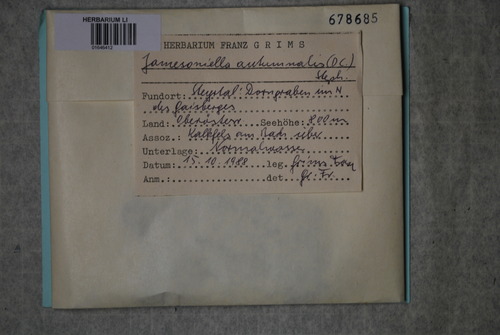 HERBARIUM LI
678685
HERBARIUM FRANZ GRIMS
Jamesoniella autumnalis (DC.)
Steph.
Fundort: Steyrtal: Dorngraben im N
des Gaisberges
Land: Oberösterr. Seehöhe: 800 m
Assoz.: Kalkfels am Bach
Unterlage:
Datum: 15.10.1988 leg. Grims Franz
Anm.: det. Gr. Fr.